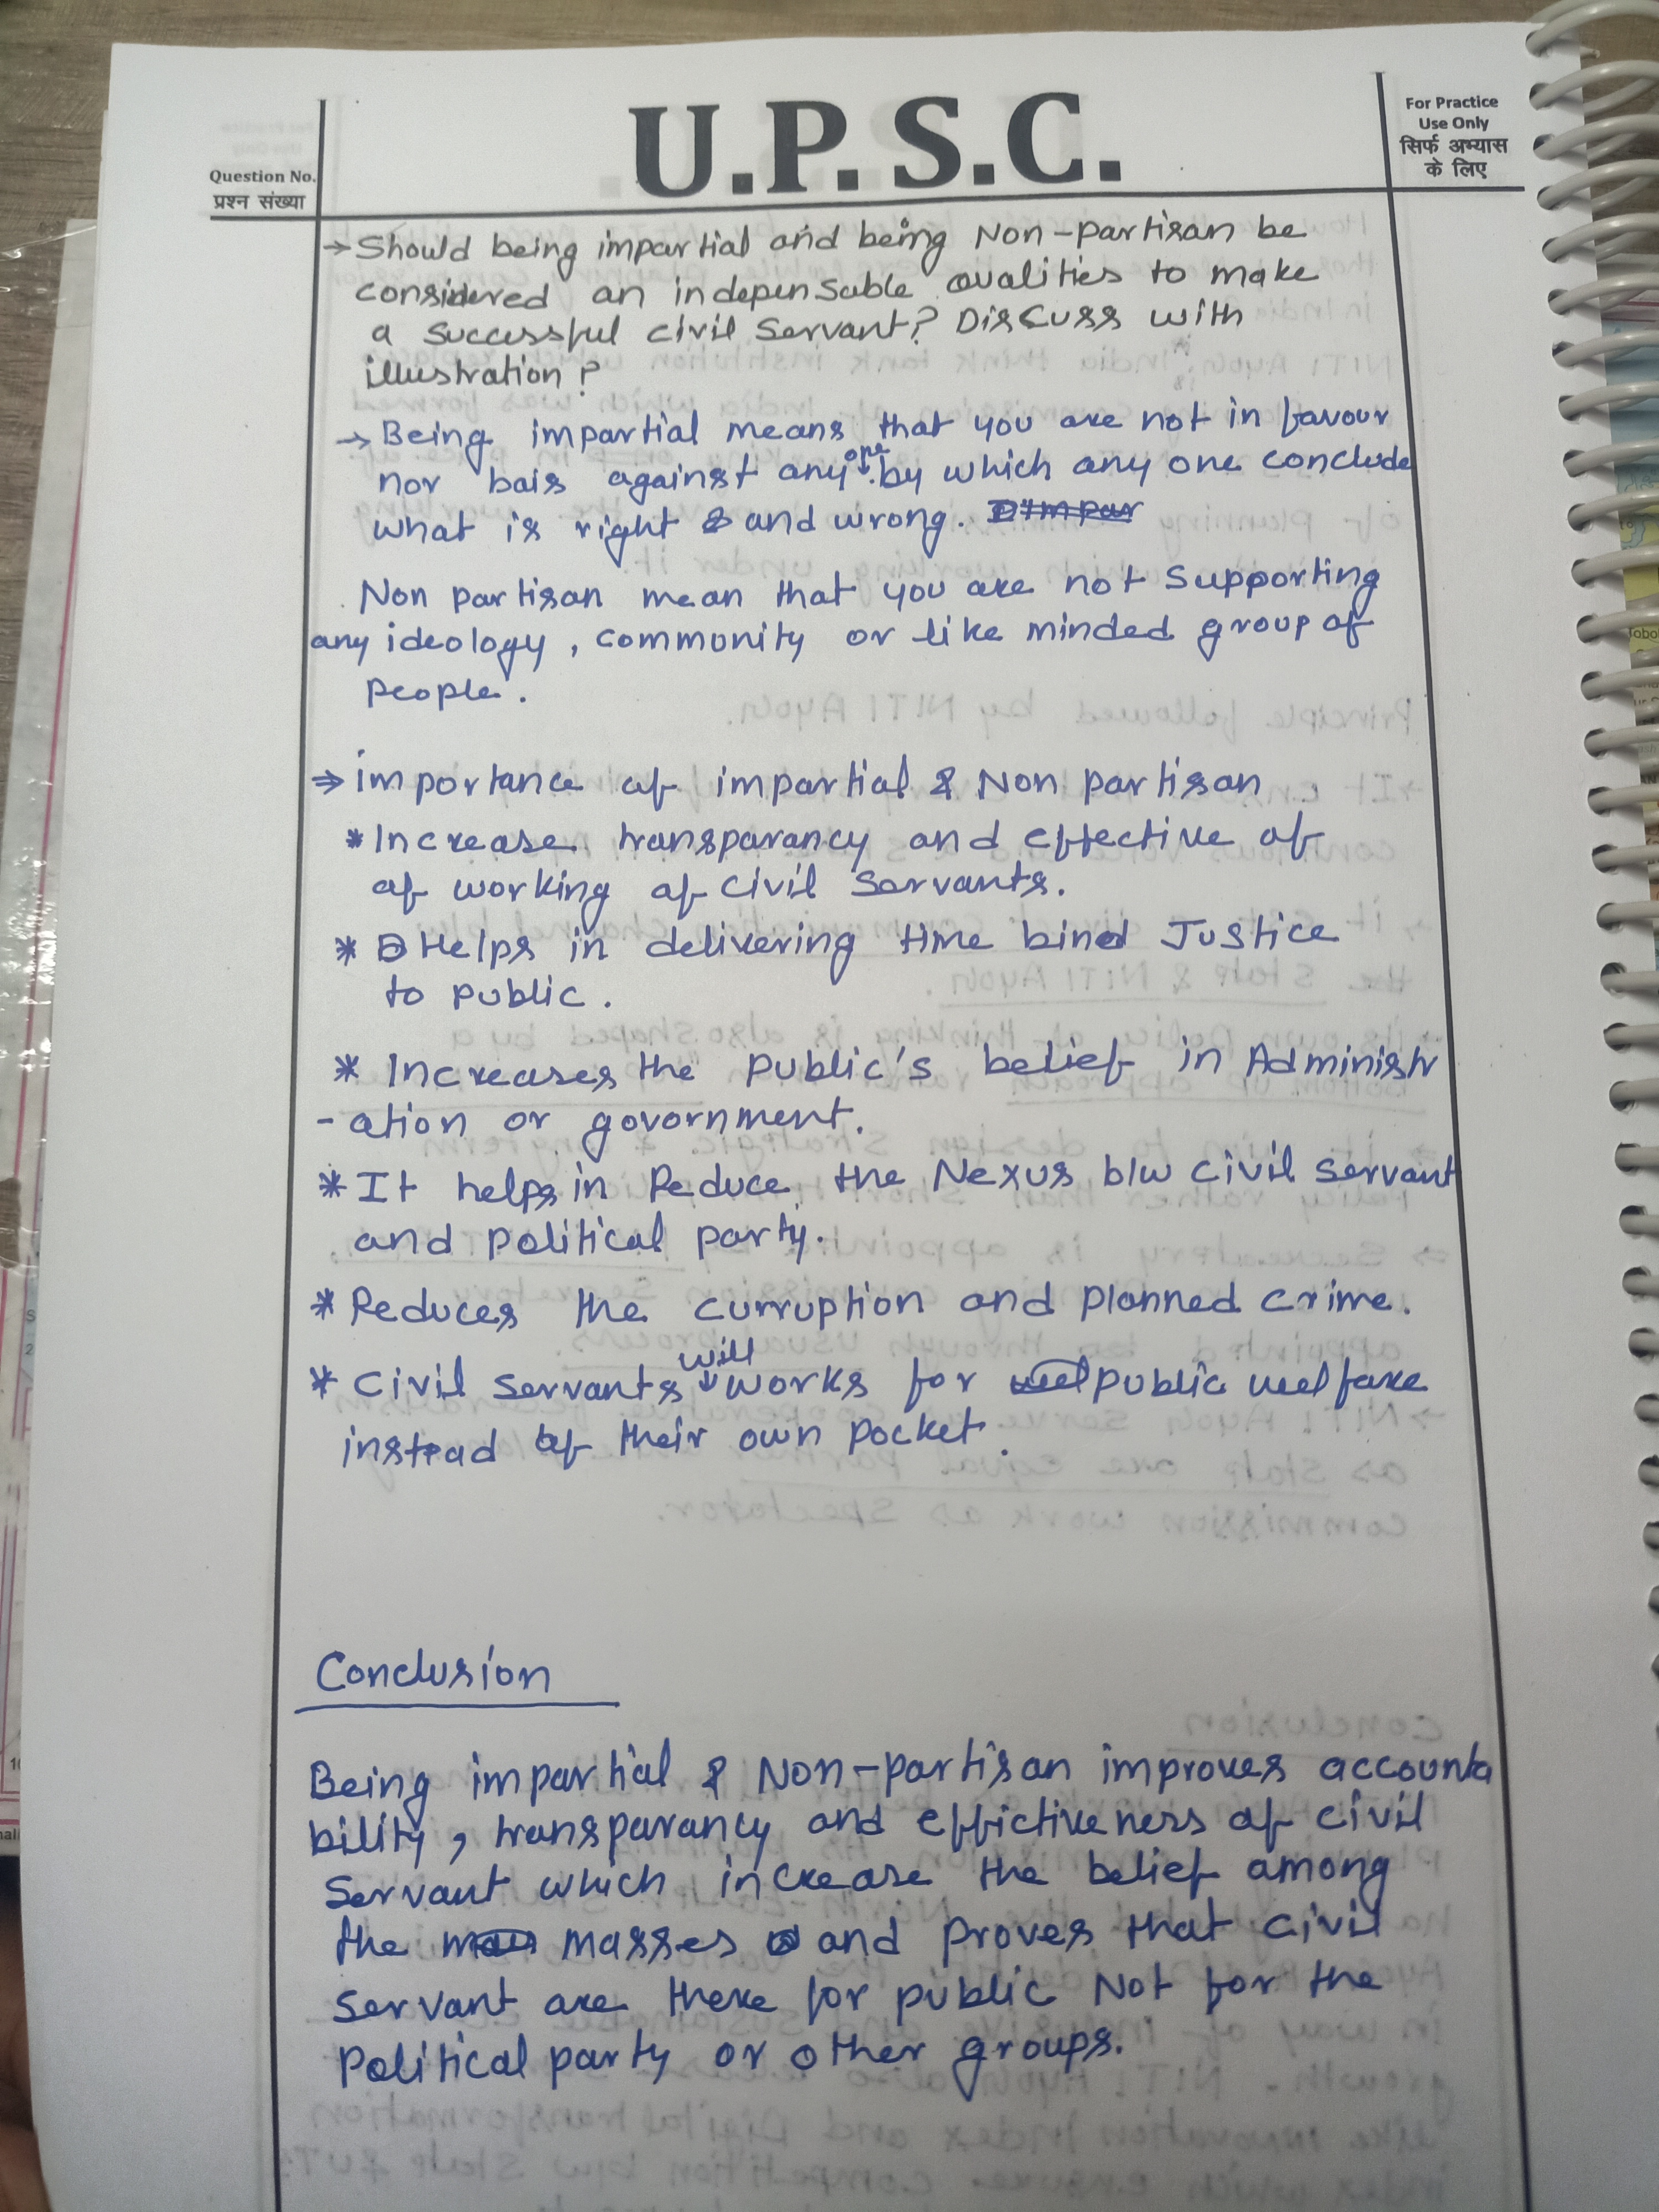 U.P.S.C.
For Practice
Use Only
सिर्फ अभ्यास
के लिए
Question No.
प्रश्न संख्या
→ Should being impartial and being Non-partisan be
considered an indepensable qualities to make
a successful civil servant? Discuss with
illustration?
→ Being impartial means that you are not in favour
nor bais against any one by which any one conclude
what is right and wrong.
Non partisan mean that you are not supporting
any ideology, community or like minded group of
people.
⇒ importance of impartial & Non partisan
* Increase transparancy and effective of
of working of civil servants.
* Helps in delivering time bined Justice
to public.
* Increases the public's belief in Administr
-ation or govornment.
* It helps in Reduce the Nexus b/w civil servant
and political party.
* Reduces the curruption and planned crime.
* Civil servants will works for public welfare
instead of their own pocket.
Conclusion
Being impartial & Non-partisan improves accounta
bility, transparancy and effictiveness of civil
servant which increase the belief among
the masses and proves that civil
servant are there for public Not for the
political party or other groups.